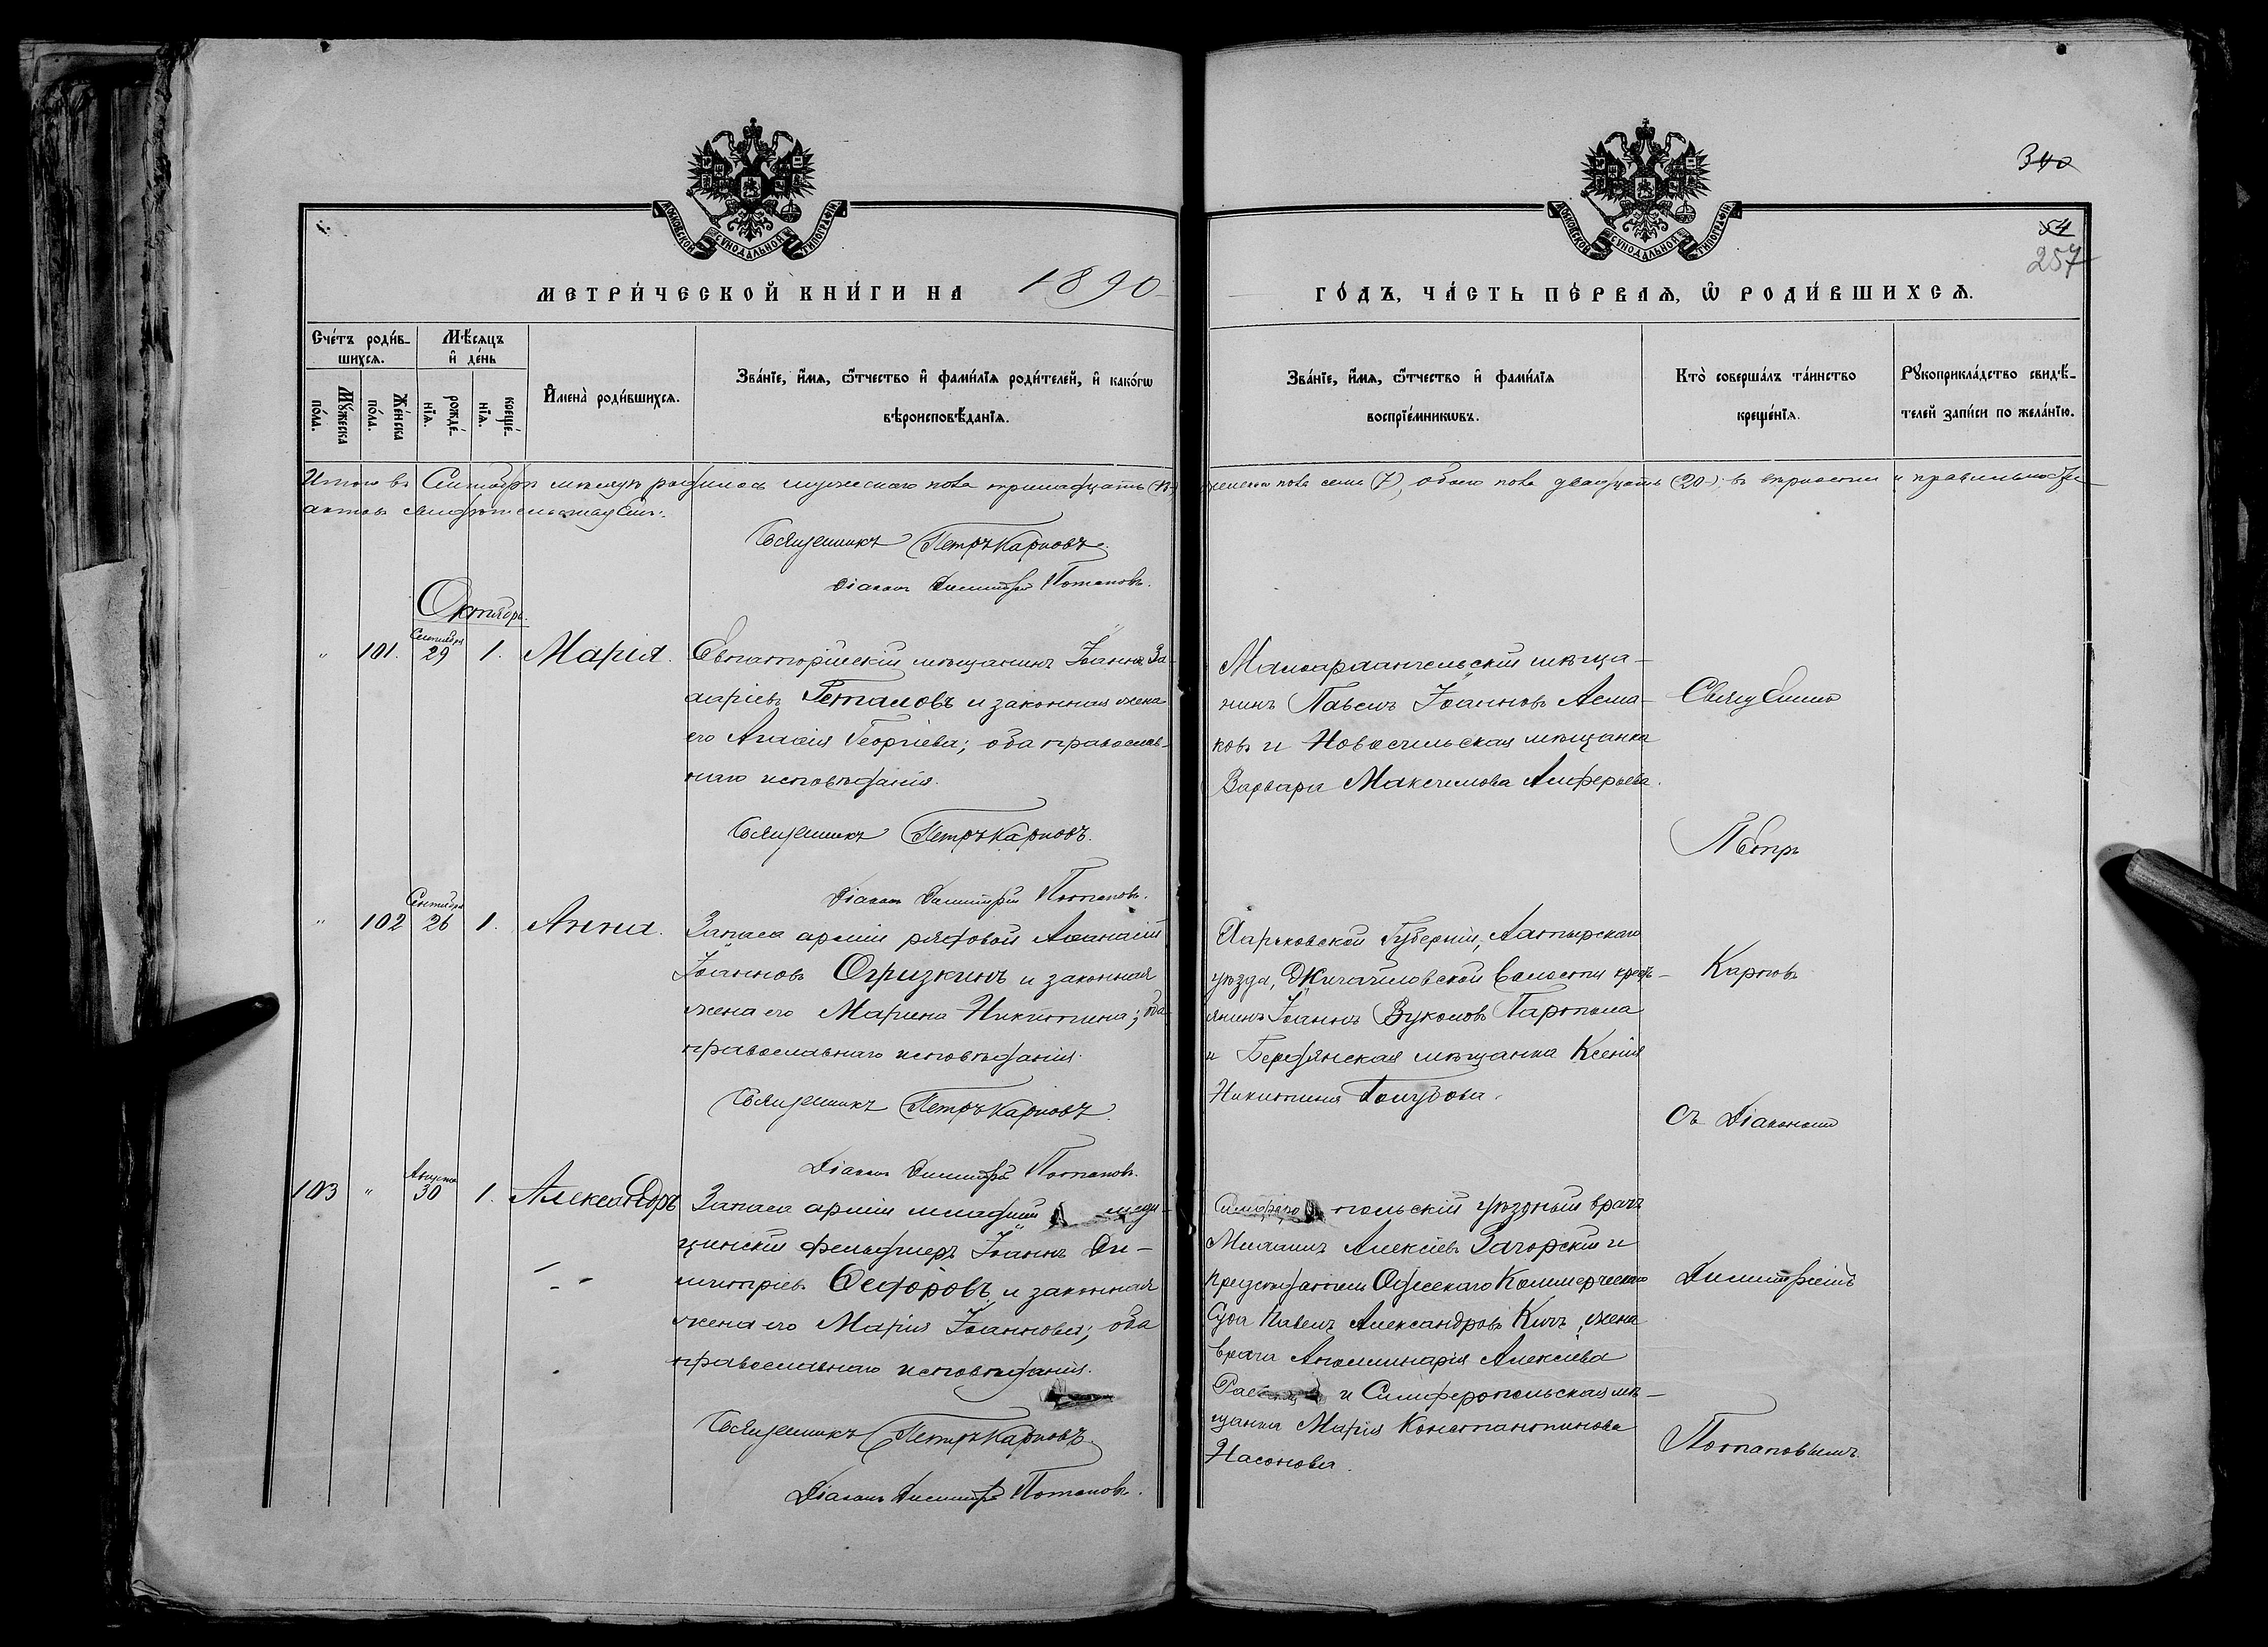 340
54
257
МОСКОВСКОЙ СѴНОДАЛЬНОЙ ТИПОГРАФІИ
МОСКОВСКОЙ СѴНОДАЛЬНОЙ ТИПОГРАФІИ
МЕТРИ́ЧЕСКОЙ КНИ́ГИ НА 1890
ГО́ДЪ, ЧА́СТЬ ПЕ́РВАѦ, Ѡ҆ РОДИ́ВШИХСѦ.
Сче́тъ роди́в-
шихсѧ.
Мѣ́сѧцъ
и҆ де́нь
Мꙋ́жеска
по́ла.
Же́нска
по́ла.
рожде́-
нїѧ.
креще́-
нїѧ.
И҆мена̀ роди́вшихсѧ.
Зва́нїе, и҆́мѧ, ѻ҆́тчество и҆ фами́лїѧ роди́телей, и҆ како́гѡ
вѣроисповѣ́данїѧ.
Зва́нїе, и҆́мѧ, ѻ҆́тчество и҆ фами́лїѧ
воспрїе́мникѡвъ.
Кто̀ соверша́лъ та́инство
креще́нїѧ.
Рꙋкоприкла́дство свидѣ́-
телей за́писи по жела́нїю.
Итого въ Сентябрѣ мѣсяцѣ родилось мужескаго пола тринадцать (13) женскаго пола семь (7), обоего пола двадцать (20); въ вѣрности и правильности
актовъ свидѣтельствуемъ:
Священникъ Петръ Карповъ
Діаконъ Димитрій Потаповъ.
Октябрь.
" 101. Сентября 29 1. Марія.
Евпаторійскій мѣщанинъ Іоаннъ За-
харіевъ и законная жена
его Георгіева; оба православ-
наго исповѣданія.
Священникъ Петръ Карповъ.
Діаконъ Димитрій Потаповъ.
Малоархангельскій мѣща-
нинъ Павелъ Іоанновъ Асма-
ковъ и Новосильская мѣщанка
Варвара Максимова Алферьева.
Священникъ
Петръ
" 102 Сентября 26 1. Анна.
Запаса арміи рядовой Аѳанасій
Іоанновъ Огризкинъ и законная
жена его Марина Никитина; оба
православнаго исповѣданія.
Священникъ Петръ Карповъ.
Діаконъ Димитрій Потаповъ.
Харьковской Губерніи,
уѣзда, волости крестъ-
янинъ Іоаннъ Вуколовъ
и Бердянская мѣщанка Ксенія
Никитина Голубова.
Карповъ
съ Діакономъ
103 " Августа 30 1. Александръ
Запаса арміи младшій меди-
цинскій фельдшеръ Іоаннъ Ди-
митріевъ Ѳедоровъ и законная
жена его Марія Іоаннова; оба
православнаго исповѣданія.
Священникъ Петръ Карповъ.
Діаконъ Димитрій Потаповъ.
Симферопольскій уѣздный врачъ
Михаилъ Алексіевъ Загорскій и
предсѣдатель Одесскаго Коммерческаго
Суда Павелъ Александровъ Кичъ, жена
врача Аполлинарія Алексіева
и Симферопольская мѣ-
щанка Марія Константинова
Насонова.
Димитріемъ
Потаповымъ.